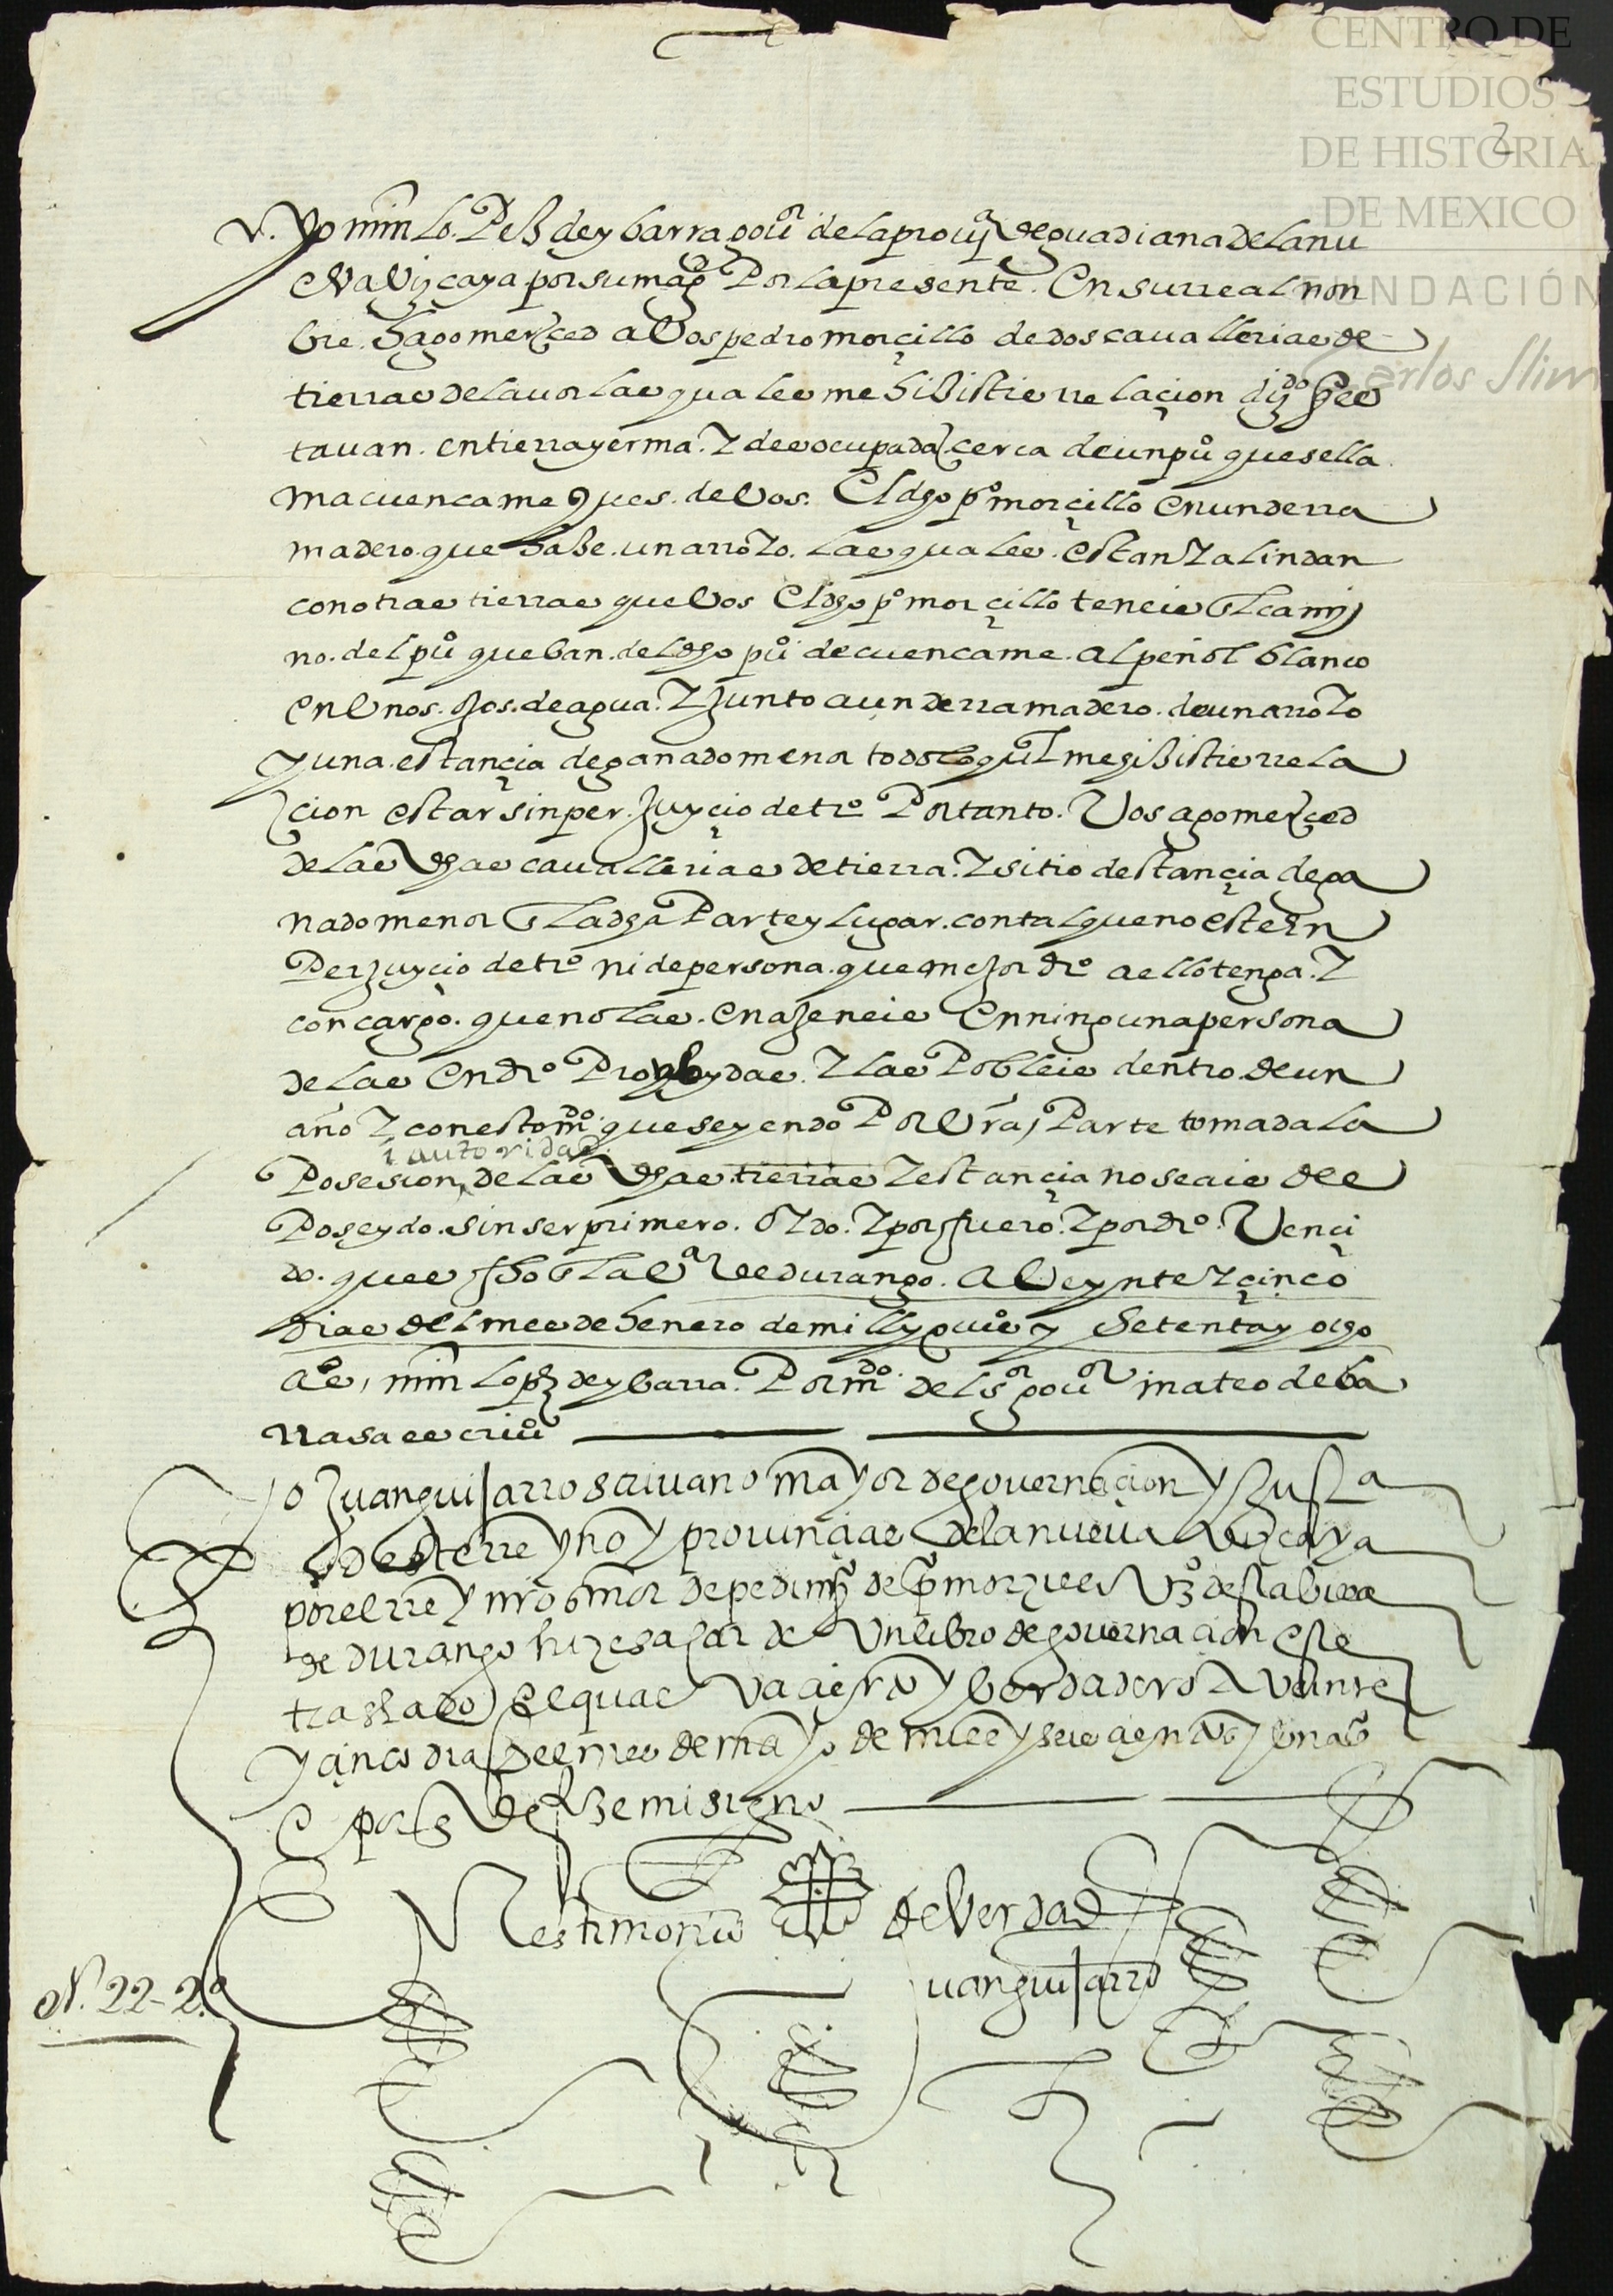 CENTRO DE
ESTUDIOS
DE HISTORIA
DE MEXICO
FUNDACIÓN
Carlos Slim
2
Yo mīn lopez de ybarra gouor de la prouia de guadiana de la nu
eva Vizcaya por su magd Por la presente. En su rreal non
bre. hago merçed a Vos pedro morçillo de dos cauallerias de
tierras de lauor las quales me hizistis rrelaçion diziendo ques
tauan. en tierra yerma. y desocupada çerca de un puo que se lla
ma cuencame ques. de Vos. El dho po morçillo en un derra
madero. que haze. un arroyo. las quales. estan y alindan
con otras tierras que Vos El dho po morçillo teneis En el cami
no. del puo que Van. del dho puo de cuencame. al peñol blanco
en Unos. ojos. de agua. y junto a un derramadero. de un arroyo
y una. estançia de ganado menor todo lo qual me hizistis rrela
çion estar sin perjuyçio de tro Por tanto. Vos ago merçed
de las dhas cauallerias de tierra. y sitio destançia de ga
nado menor En la dha Parte y lugar. con tal que no este En
Perjuyçio de tro ni de persona. que mejor dro a ello tenga. y
con cargo. que no las. enajeneis En ninguna persona
de las En dro Proybydas. y las Pobleis dentro de un
año y con esto mdo que seyendo Por Vra Parte tomada la
i autoridad
Posesion de las dhas tierras y estançia no seais des
Poseydo. sin ser primero. oydo. y por fuero. y por dro. Vençi
do. ques fho En la Va de durango. a Veynte y çinco
dias del mes de henero de mill y quios y Setenta y ocho
as, mīn lopz de ybarra. Por mdo del sor gouor mateo de ba
rrasa escriuo
Yo Juan guijarro scriuano mayor de governaçion y Justa
deste rreyno y prouinçias de la nueva Vizcaya
por el rrey nro señor de pedimo de po morzillo vzo desta billa
de durango hize sacar de Un libro de governaçion este
traslado el qual Va çierto y berdadero En Veinte
y cinco dias del mes de mayo de mill y seisçientos y un as
E por ende fize mi signo
En testimonio de Verdad
Juan guijarro
N. 22-2.o